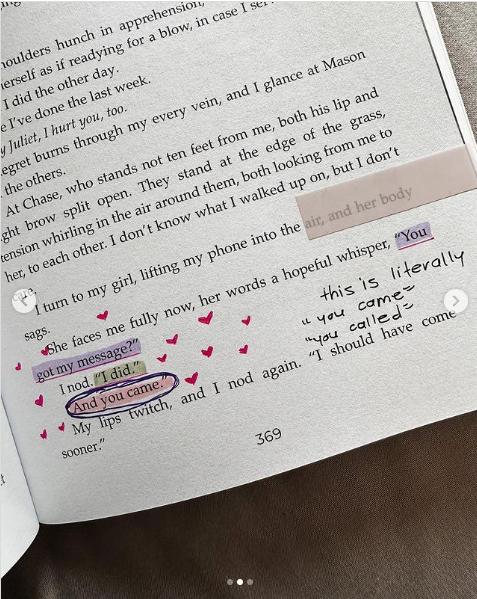 houlders hunch in apprehension,
erself as if readying for a blow, in case I
I did the other day.
e I've done the last week.
y Juliet, I hurt you, too.
egret burns through my every vein, and I glance at Mason
the others.
At Chase, who stands not ten feet from me, both his lip and
ght brow split open. They stand at the edge of the grass,
tension whirling in the air around them, both looking from me to
her, to each other. I don't know what I walked up on, but I don't
care.
I turn to my girl, lifting my phone into the air, and her body
sags.
She faces me fully now, her words a hopeful whisper, "You
got my message?"
I nod. "I did."
"And you came."
My lips twitch, and I nod again. "I should have come
sooner."
this is literally
"you came"
"you called"
369